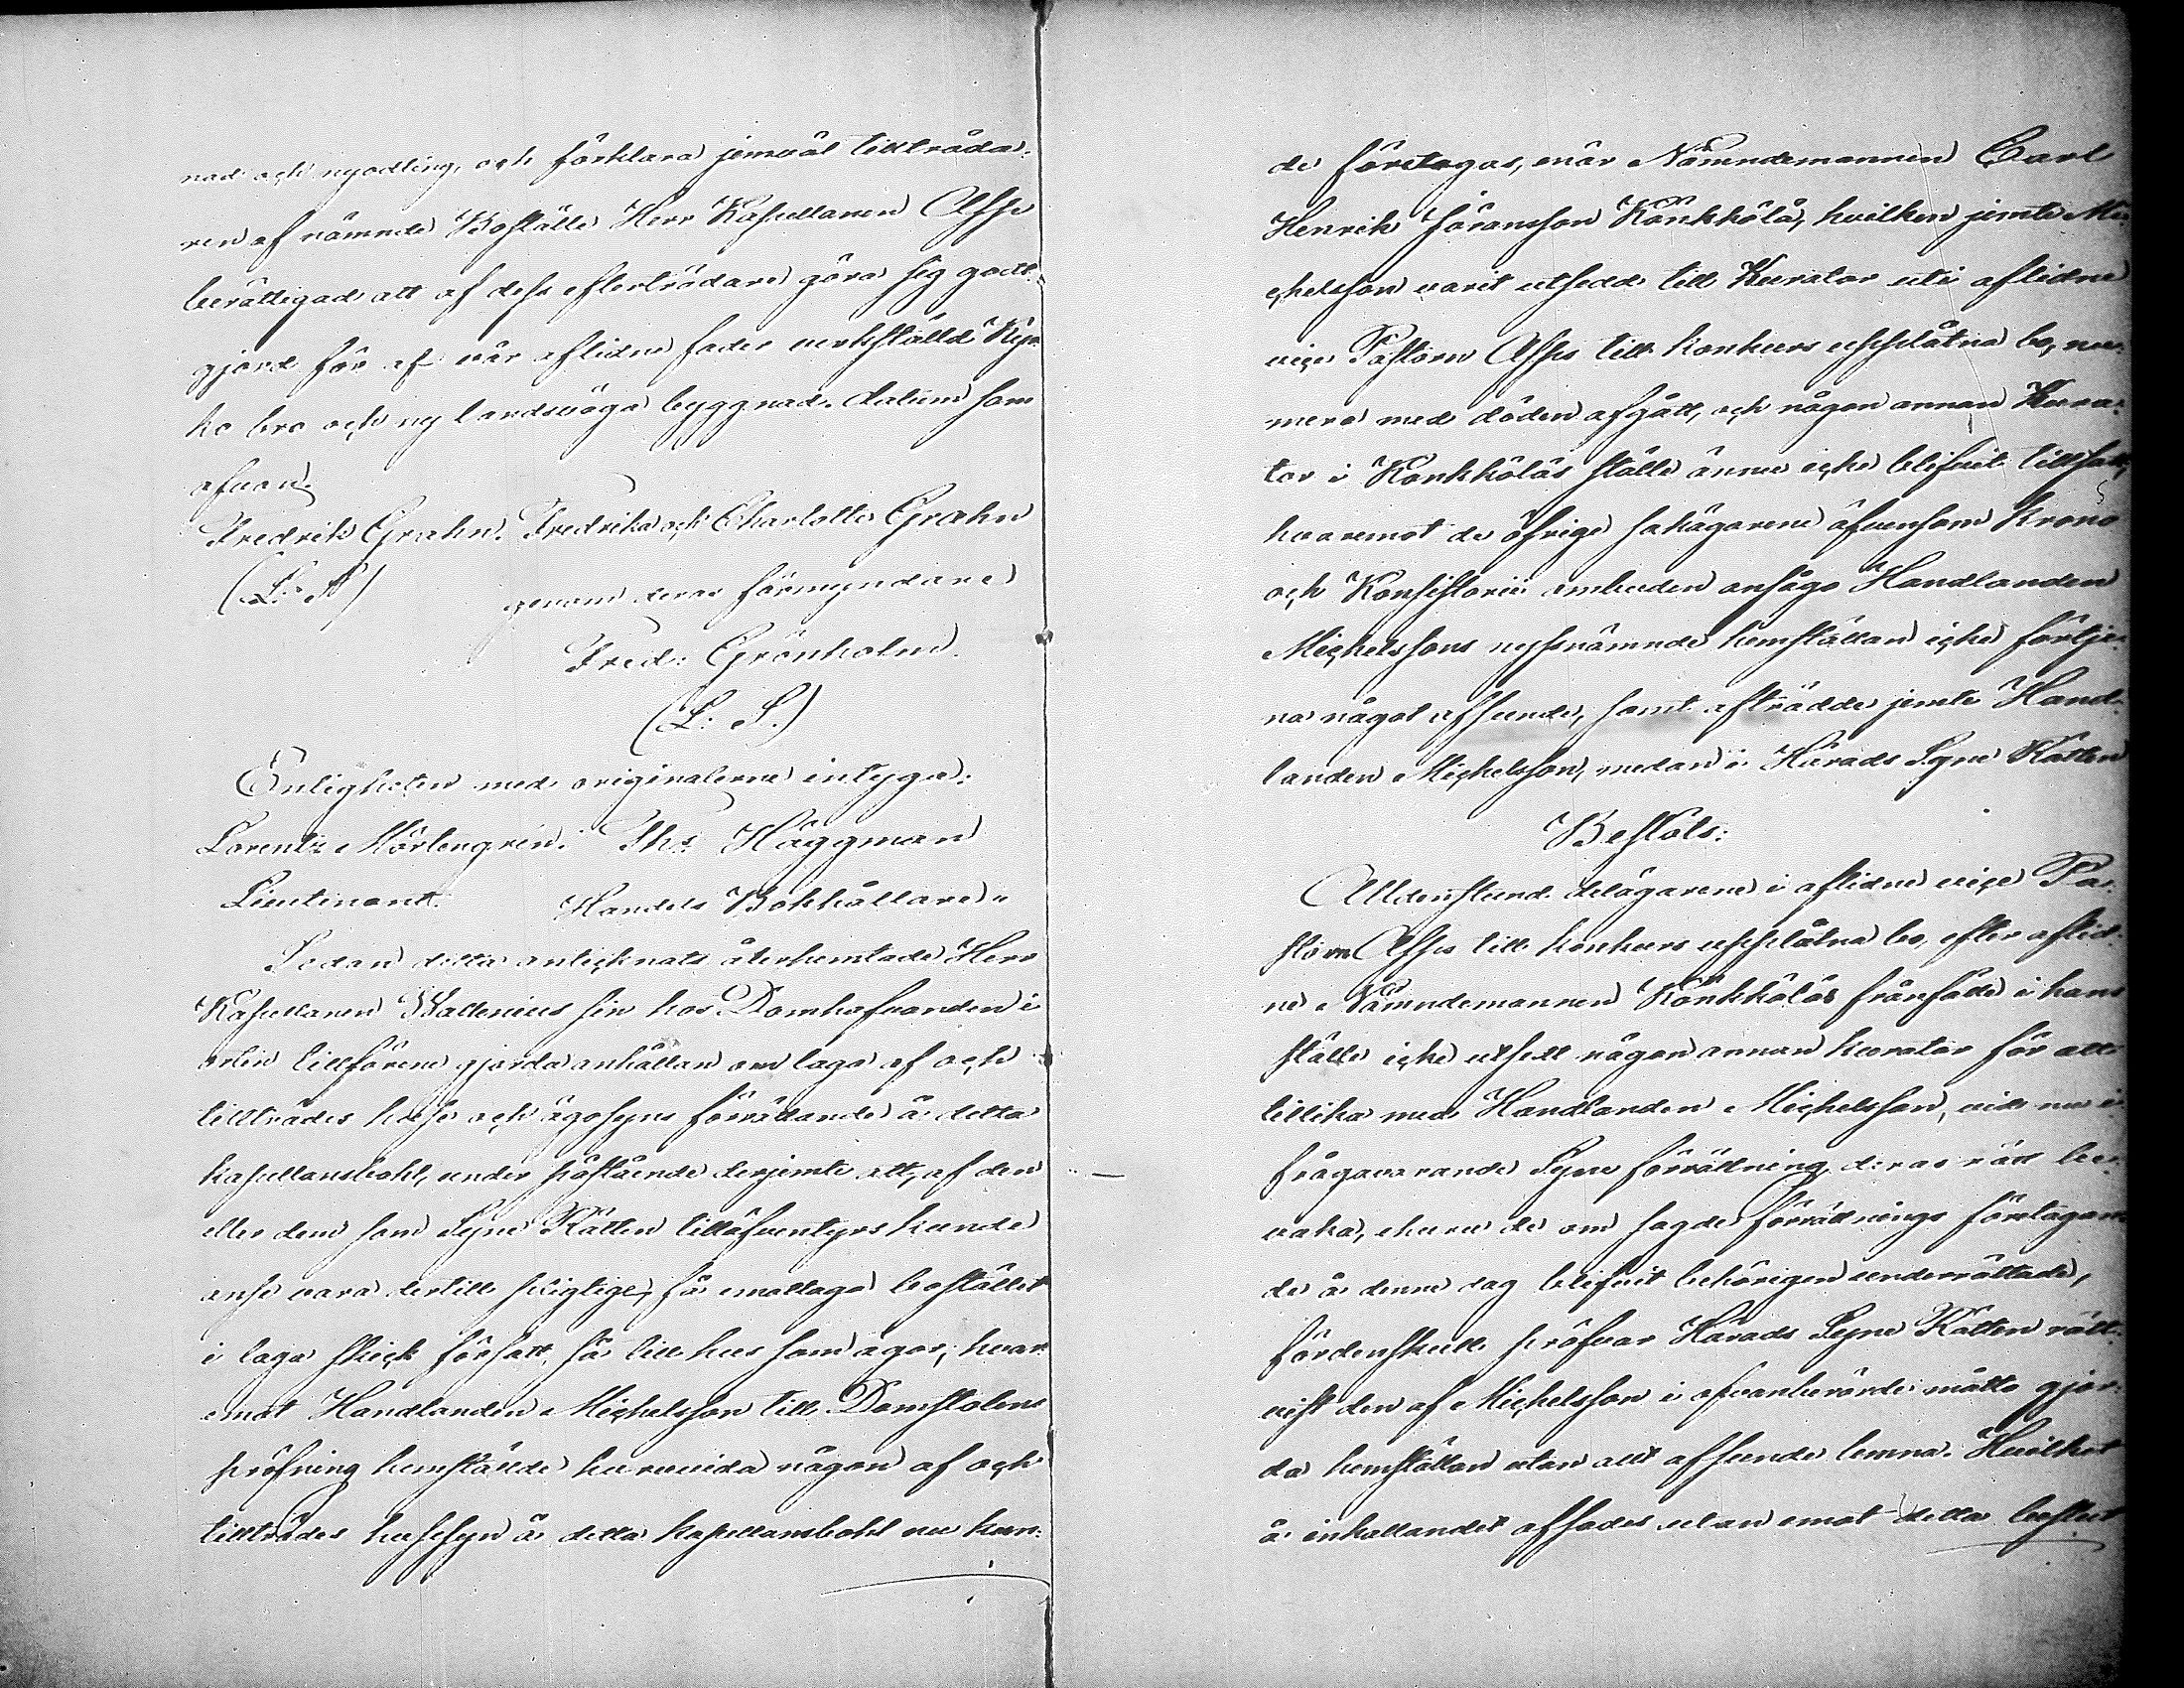 nad och nyodling, och förklara jemväl tillträda,
ren af nämnde Boställe Herr Kapellanen Alfhe
berättigad att af dess efterträdare göra sig godt,
gjord för af vår aflidne fader verkställd Kyr,
ko bro och ny landsväga byggnad. datum som
ofvan.
Fredrik Grahn. Fredrika och Charlotte Grahn
(L. S.)
genom deras förmyndare
Fred: Grönholm.
(L: S.)
Enligheten med originalerne intyga:
Lorentz Mörtengren. Ths: Häggman
Lieutinant. Handels Bokhållare"
Sedan detta antecknats återhemtade Herr
Kapellanen Wallenius sin hos Domhafvanden i
orten tillförene gjorda anhållan om laga af och
tillträdes huse och ägosyns förrättande å detta
kapellansbohl, under påstående derjemte att, af den
eller dem som Syne Rätten tilläfventyrs kunde
anse vara dertill pligtige, få emottaga bostället
i laga skick försatt, så till hus som ägor; hvar
emot Handlanden Michelsson till Domstolens
pröfning hemställde huruvida någon af och
tillträdes husesyn å detta kapellansbohl nu kun,
de företagas, enär Nämndemannen Carl
Henrik Jöransson Könkkölä, hvilken jemte Mi
chelsson varit utsedd till Kurator uti aflidne
vice Pastorn Alfhes till konkurs upplåtna bo, nu
mera med döden afgått, och någon annan Kura,
tor i Könkköläs ställe ännu icke blifvit tillsatt,
hvaremot de öfrige sakägarene äfvensom Krono
och Konsistorii ombuden ansågo Handlanden
Michelssons nyssnämnde hemställan icke förtje,
na något afseende, samt afträdde jemte Hand,
landen Michelsson, medan i Härads Syne Rätten
Beslöts:
Alldenstund delägarene i aflidne vice Pa,
storn Alfhes till konkurs upplåtna bo, efter aflid,
ne Nämndemannen Könkköläs frånfälle i hans
ställe icke utsett någon annan kurator för att
tillika med Handlanden Michelsson, vid nu i
frågavarande Syne förrättning deras rätt be,
vaka, ehuru de om sagde förrättnings företagan
de å denne dag blifvit behörigen underrättade,
fördenskull pröfvar Härads Syne Rätten rätt,
vist den af Michelsson i ofvanberörde måtto gjor,
da hemställan utan allt afseende lemna. Hvilket
å inkallandet afsades utan emot detta beslut